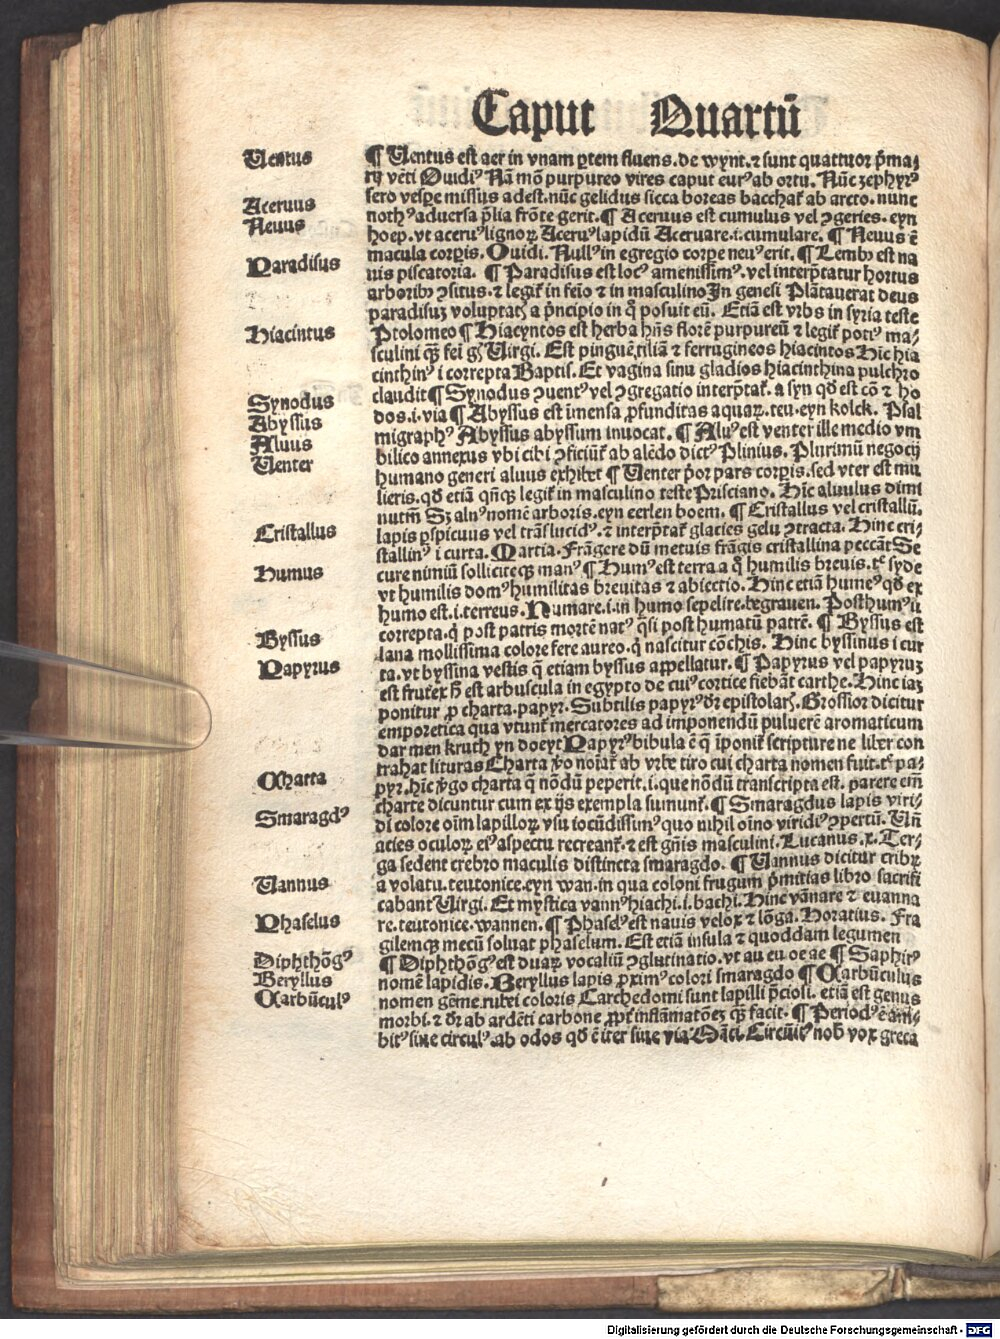 Caput Quartū
Uentus
¶ Uentus est aer in vnam ꝑtem fluens. de wynt. ⁊ sunt quattuor p̄ma⸗
rij vēti Ouidiꝰ Nā mō purpureo vires caput eurꝰ ab ortu. Nūc zephyrꝰ
sero vesꝑe missus adest. nūc gelidus sicca boreas bacchaꝉ ab arcto. nunc
Aceruus
nothꝰ aduersa p̄lia frōte gerit. ¶ Aceruus est cumulus vel ꝯgeries. eyn
Neuus
hoep. vt aceruꝰ lignoꝝ Aceruꝰ lapidū Aceruare .i. cumulare. ¶ Neuus ē
macula corꝑis. Ouidi. Nullꝰ in egregio corꝑe neuꝰ erit. ¶ Lembꝰ est na
Paradisus
uis piscatoria. ¶ Paradisus est locꝰ amenissimꝰ. vel interp̄tatur hortus
arboribꝰ ꝯsitus. ⁊ legiꝉ in feīo ⁊ in masculino In genesi Plātauerat deus
paradisuz voluptatꝭ a p̄ncipio in q̊ posuit eū. Etiā est vrbs in syria teste
Hiacintus
Ptolomeo ¶ Hiacyntos est herba hn̄s florē purpureū ⁊ legiꝉ potiꝰ ma⸗
sculini qꝫ fei gꝭ Uirgi. Est pinguē tiliā ⁊ ferrugineos hiacintos Hic hia
cinthinꝰ i correpta Baptis. Et vagina sinu gladios hiacinthina pulchro
claudit ¶ Synodus ꝯuentꝰ vel ꝯgregatio interp̄taꝉ. a syn qd̄ est cō ⁊ ho
Synodus
dos .i. via ¶ Abyssus est īmensa ꝓfunditas aquaꝝ. teu. eyn kolck. Psal
Abyssus
migraphꝰ Abyssus abyssum inuocat. ¶ Aluꝰ est venter ille medio vm
Aluus
bilico annexus vbi cibi ꝯficiūꝉ ab alēdo dictꝰ Plinius. Plurimū negocij
Uenter
humano generi aluus exhibet ¶ Uenter p̄or pars corꝑis. sed vter est mu
lieris. qd̄ etiā qn̄qꝫ legiꝉ in masculino teste Prisciano. Hic aluulus dimi
nutiū Sꝫ alnꝰ nomē arboris. eyn eerlen boem. ¶ Cristallus vel cristallū.
Cristallus
lapis ꝑspicuus vel trāslucidꝰ. ⁊ interp̄taꝉ glacies gelu ꝯtracta. Hinc cri⸗
stallinꝰ i curta. Martia. Frāgere dū metuis frāgis cristallina peccāt Se
Humus
cure nimiū sollicite qꝫ manꝰ ¶ Humꝰ est terra a q̊ humilis breuis. tꝭ syde
vt humilis domꝰ humilitas breuitas ⁊ abiectio. Hinc etiā humeꝰ qd̄ ex
humo est .i. terreus. Humare .i. in humo sepelire. begrauen. Posthumꝰ u
correpta. q̊ post patris mortē natꝰ q̊si post humatū patrē. ¶ Byssus est
Byssus
lana mollissima colore fere aureo. q̊ nascitur cōchis. Hinc byssinus i cur
Papyrus
ta. vt byssina vestis q̊ etiam byssus appellatur. ¶ Papyrus vel papyruz
est frutex h̄ est arbuscula in egypto de cuiꝰ cortice fiebāt carthe. Hinc iaz
ponitur ꝓ charta. papyr. Subtilis papyrꝰ dr̄ epistolarꝭ. Grossior dicitur
emporetica qua vtuntꝉ mercatores ad imponendū puluerē aromaticum
dar men kruth yn doeyt Papyrꝰ bibula ē q̊ īponiꝉ scripture ne liber con
trahat lituras Charta ꝟo noīaꝉ ab vrbe tiro cui charta nomen fuit. tꝭ pa⸗
Charta
pyr. hic ꝟgo charta q̊ nōdū peperit .i. que nōdū transcripta est. parere em̄
charte dicuntur cum ex ijs exempla sumunꝉ. ¶ Smaragdus lapis viri⸗
Smaragdꝰ
di colore oīm lapilloꝝ vsu iocūdissimꝰ quo nihil oīno viridiꝰ ꝯpertū. Un̄
acies oculoꝝ eiꝰ aspectu recreanꝉ. ⁊ est gn̄is masculini. Lucanus .x. Ter⸗
ga sedent crebro maculis distincta smaragdo. ¶ Uannus dicitur cribꝝ
Uannus
a volatu. teutonice. eyn wan. in qua coloni frugum p̄mitias libro sacrifi
cabant Uirgi. Et mystica vannꝰ hiachi .i. bachi. Hinc vānare ⁊ euanna
Phaselus
re. teutonice. wannen. ¶ Phaselꝰ est nauis velox ⁊ lōga. Horatius. Fra
gilemqꝫ mecū soluat phaselum. Est etiā insula ⁊ quoddam legumen
Diphthōgꝰ
¶ Diphthōgꝰ est duaꝝ vocaliū ꝯglutinatio. vt au eu oe ae ¶ Saphirꝰ
Beryllus
nomē lapidis. Beryllus lapis ꝓximꝰ colori smaragdo ¶ Carbūculus
Carbūculꝰ
nomen gēme. rubei coloris Carchedomi sunt lapilli p̄cioli. etiā est genus
morbi. ⁊ dr̄ ab ardēti carbone ꝓpt̄ inflāmatōeꝫ qꝫ facit. ¶ Periodꝰ ē am⸗
bitꝰ siue circulꝰ. ab odos qd̄ ē iter siue via Māti. Circūitꝰ nob̄ vox greca
Digitalisierung gefördert durch die Deutsche Forschungsgemeinschaft - DFG